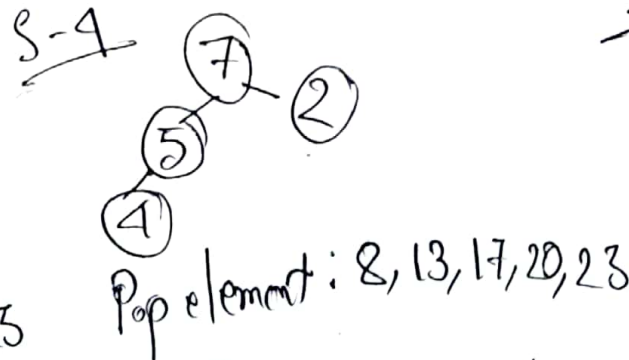 S-4
7
2
5
4
Pop element: 8, 13, 17, 20, 23